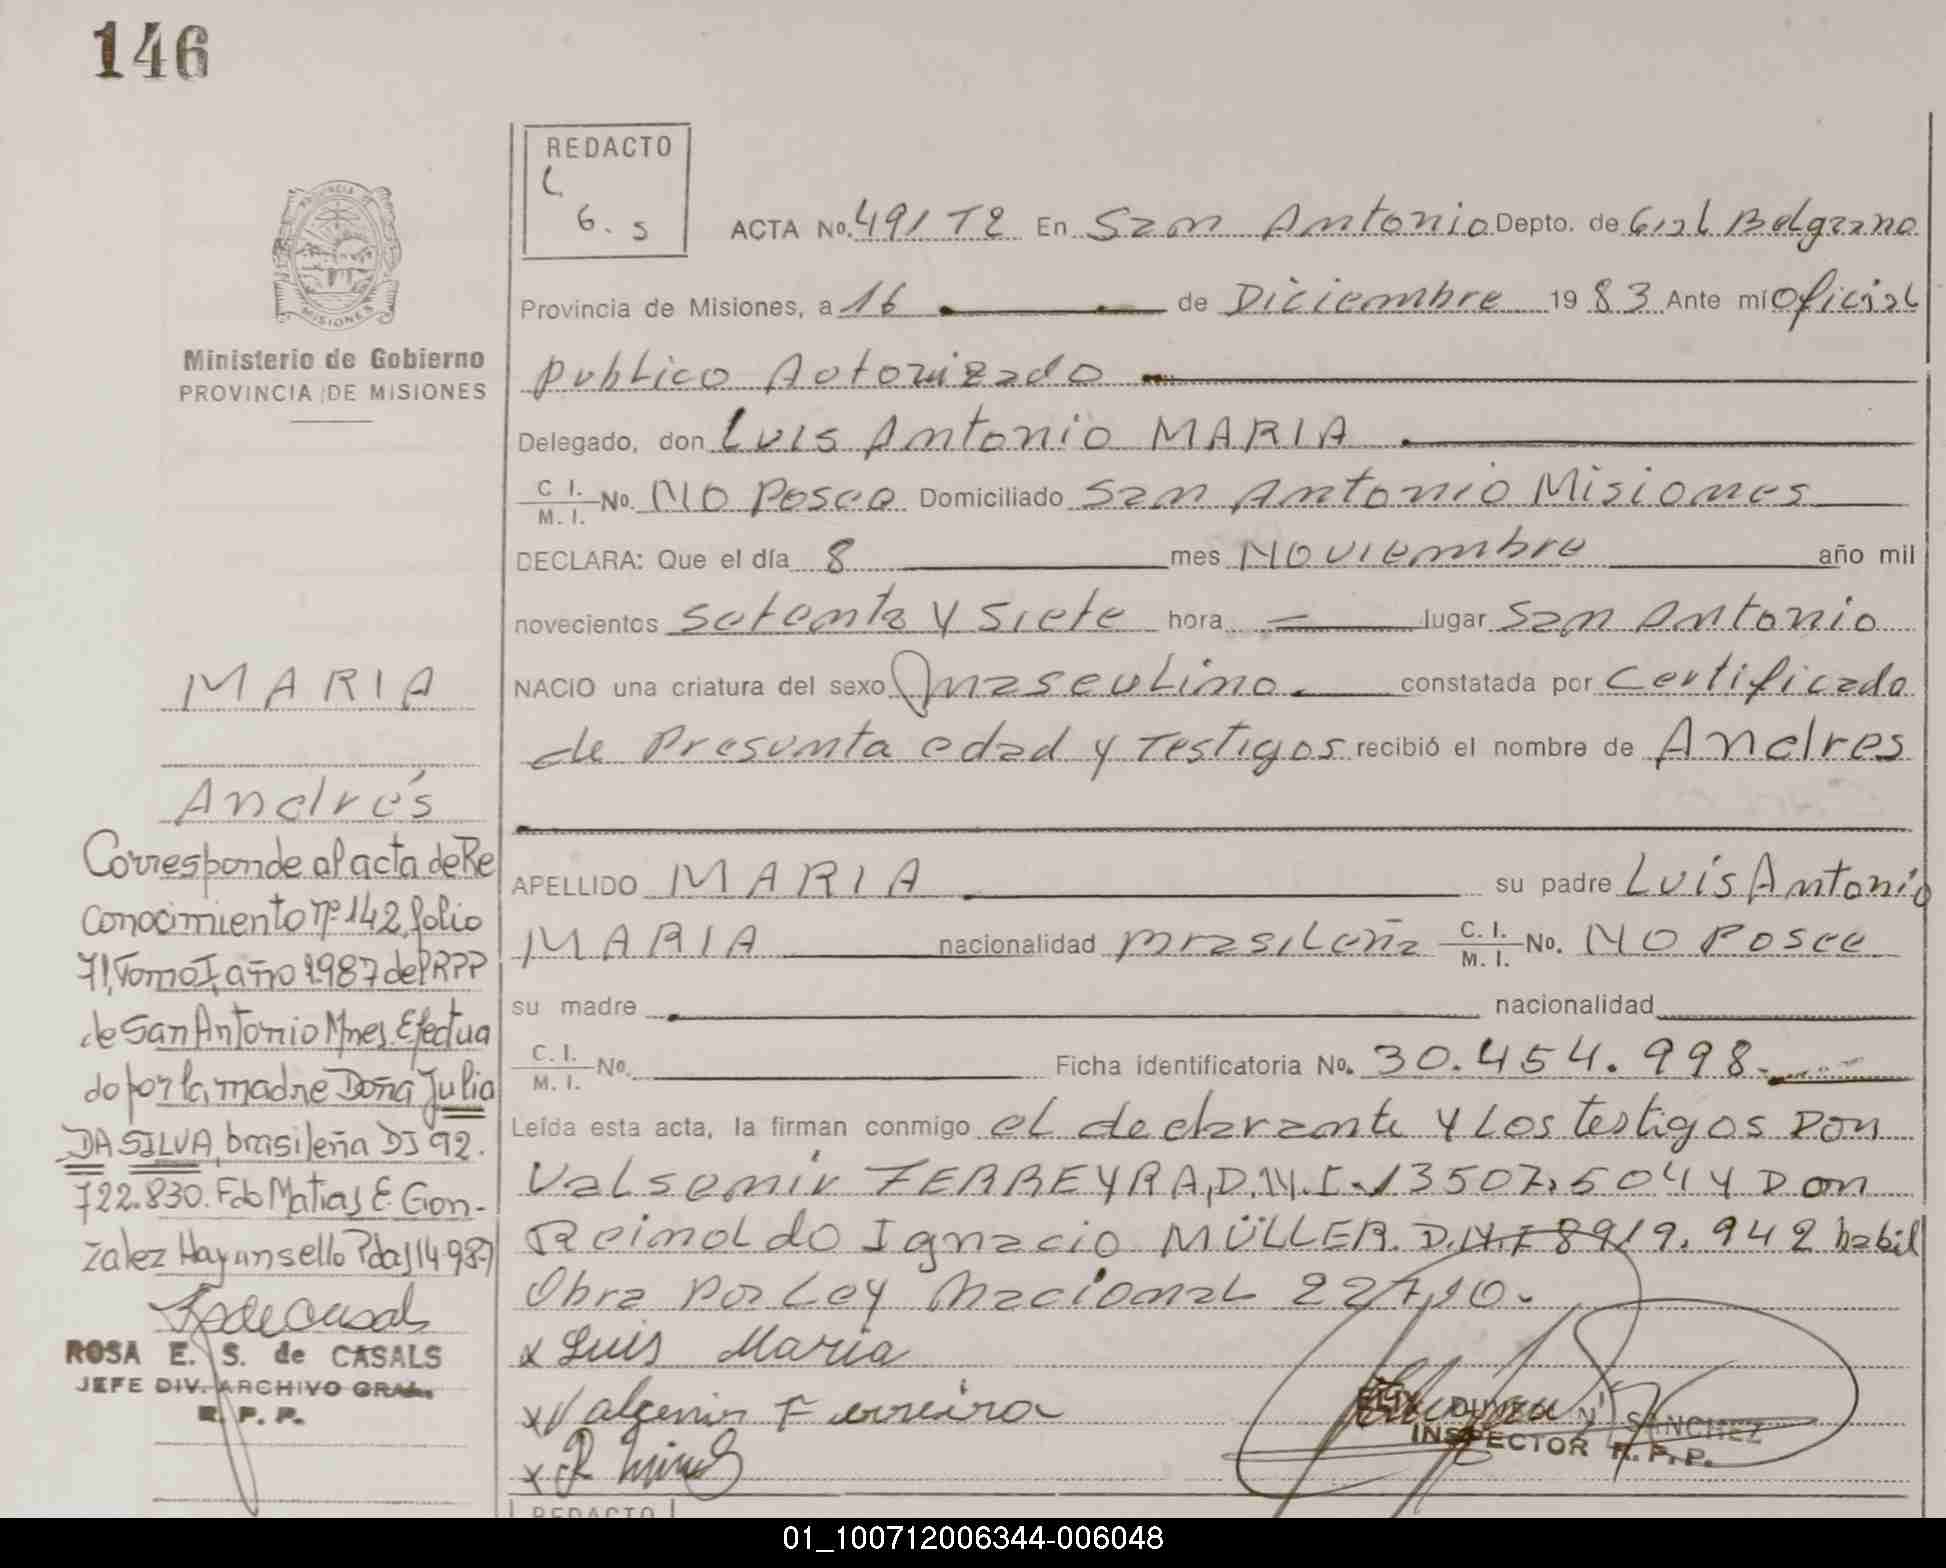 146
REDACTO
6. 5
PROVINCIA DE
MISIONES
Ministerio de Gobierno
PROVINCIA DE MISIONES
ACTA No. 491 T2 En San Antonio Depto. de Gral Belgrano
Provincia de Misiones, a 16 de Diciembre 19 83 Ante mi Oficial
publico Autorizado
Delegado, don Luis Antonio MARIA
C. I. / M. I. No. NO Posee Domiciliado San Antonio Misiones
DECLARA: Que el día 8 mes Noviembre año mil
novecientos setenta y siete hora lugar San Antonio
NACIO una criatura del sexo masculino constatada por Certificado
de Presunta edad y Testigos recibió el nombre de Andres
APELLIDO MARIA su padre Luis Antonio
MARIA nacionalidad brasileña C. I. / M. I. No. NO Posee
su madre nacionalidad
C. I. / M. I. No. Ficha identificatoria No. 30.454.998
Leída esta acta, la firman conmigo el declarante y Los testigos Don
Valsemir FERREYRA, D.N.I. 13507.504 y Don
Reinoldo Ignacio MÜLLER. D.N.I 8919.942 habil
Obra por Ley Nacional 22710.
x Luis Maria
x Valcemir Ferreira
x R
FELIX SANCHEZ
INSPECTOR R. P. P.
MARIA
Andrés
Corresponde al acta de Re
conocimiento nº 142, folio
71, Tomo I, año 1987 del RPP
de San Antonio Mnes. Efectua
do por la madre Doña Julia
DA SILVA, brasileña DJ 92.
722.830. Fdo Matias E. Gon-
zalez Hay un sello Pdas 14987
ROSA E. S. de CASALS
JEFE DIV. ARCHIVO GRAL.
R. P. P.
REDACTO
01_100712006344-006048